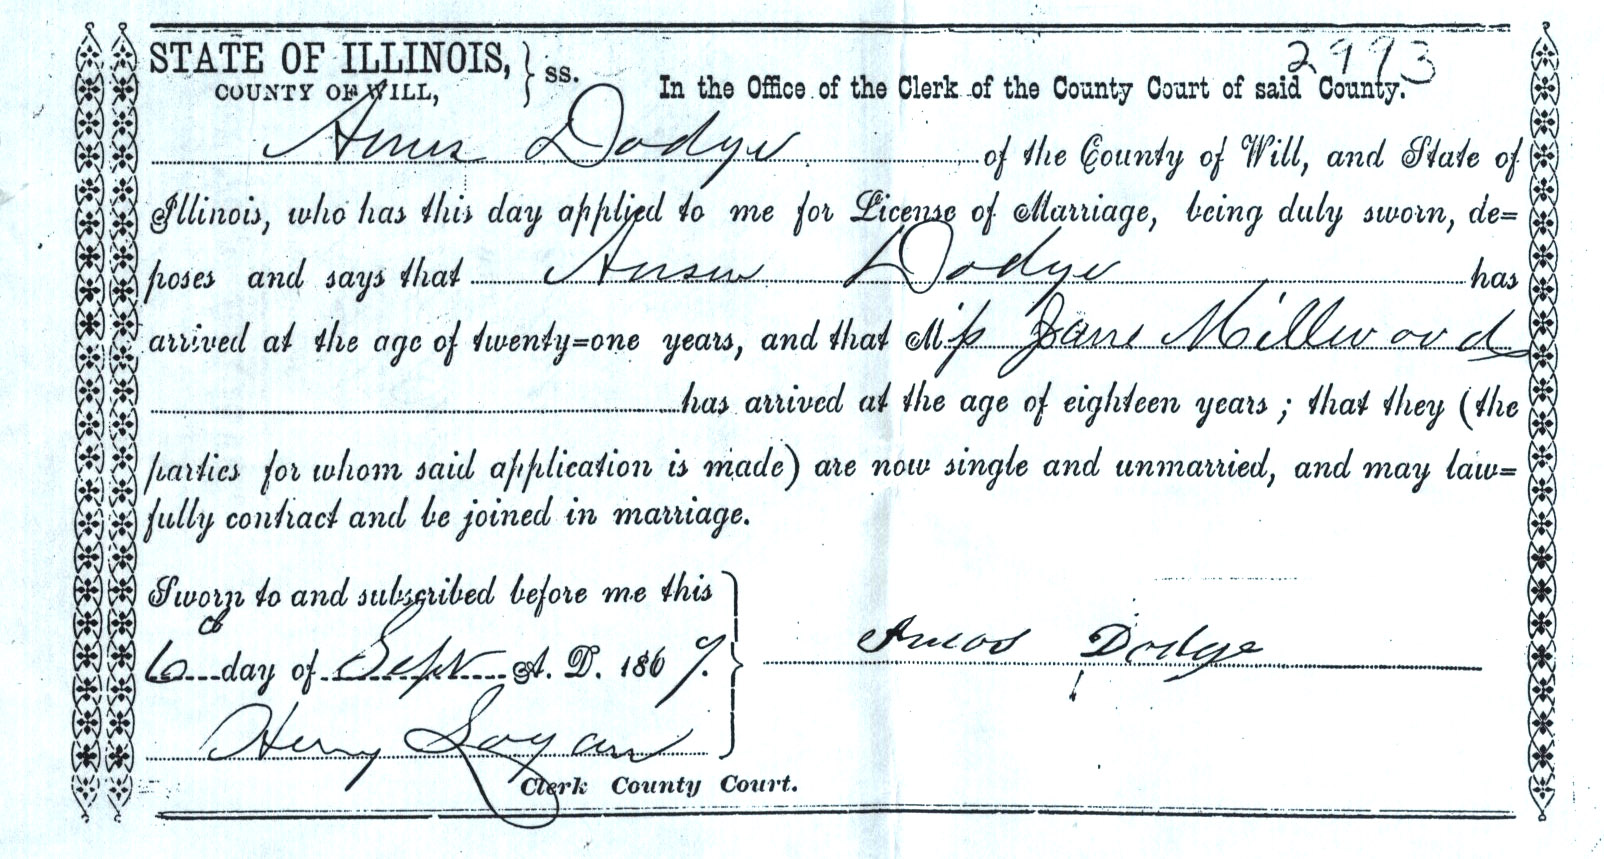 2993
STATE OF ILLINOIS, } ss.
COUNTY OF WILL,
In the Office of the Clerk of the County Court of said County.
Amos Dodge of the County of Will, and State of
Illinois, who has this day applied to me for License of Marriage, being duly sworn, de=
poses and says that Dodge has
arrived at the age of twenty=one years, and that Miss Jane Millwood
has arrived at the age of eighteen years; that they (the
parties for whom said application is made) are now single and unmarried, and may law=
fully contract and be joined in marriage.
Sworn to and subscribed before me this
6 day of Sept A. D. 1867.
Amos Dodge
Henry Logan
Clerk County Court.